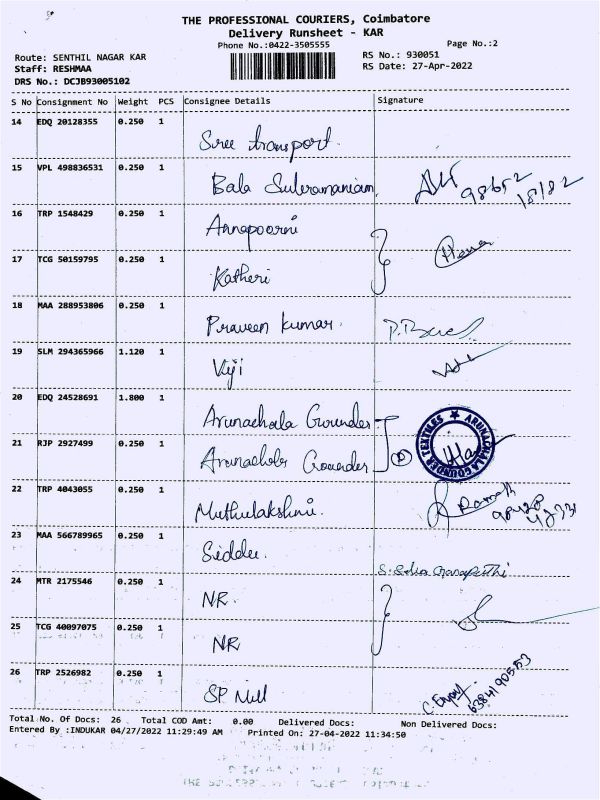 THE PROFESSIONAL COURIERS, Coimbatore
Delivery Runsheet - KAR
Phone No.:0422-3505555
Page No.:2
Route: SENTHIL NAGAR KAR
RS No.: 930051
Staff: RESHMAA
RS Date: 27-Apr-2022
DRS No.: DCJB93005102
S No Consignment No Weight PCS Consignee Details Signature
14 EDQ 20128355 0.250 1
Sree transport.
15 VPL 498836531 0.250 1
Bala Subramaniam 98652 18182
16 TRP 1548429 0.250 1
Annapoorni
17 TCG 50159795 0.250 1
Katheri
18 MAA 288953806 0.250 1
Praveen kumar.
19 SLM 294365966 1.120 1
Viji
20 EDQ 24528691 1.800 1
Arunachala Gounder
21 RJP 2927499 0.250 1
Arunachala Gounder
ARUNACHALA GOUNDER TEXTILES
22 TRP 4043055 0.250 1
Muthulakshmi.
23 MAA 566789965 0.250 1
Siddu.
24 MTR 2175546 0.250 1
NR.
25 TCG 40097075 0.250 1
NR
26 TRP 2526982 0.250 1
SP Mill
6384190553
Total No. Of Docs: 26 Total COD Amt: 0.00 Delivered Docs: Non Delivered Docs:
Entered By :INDUKAR 04/27/2022 11:29:49 AM Printed On: 27-04-2022 11:34:50